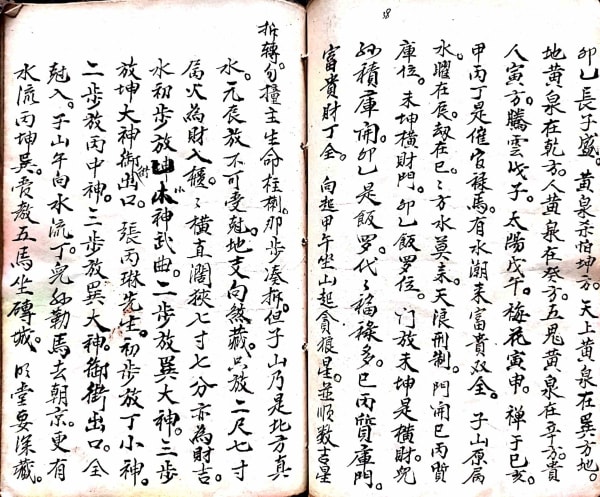 卯乙長子盛。黃泉杀怕坤方。天上黃泉在巽方。地
地黃泉在乾方。人黃泉在癸方。五鬼黃泉在辛方。貴
人寅方。騰雲戊子。太陽戊午。梅花寅申。禅于巳亥。
甲丙丁是催官祿馬。有水潮来富貴双全。子山原属
水。曜在辰。刼在巳。三方水莫来。天浪刑制。門開巳丙貭
庫位。未坤橫財門。卯乙飯罗位。门放未坤是橫財兜
积庫。開卯乙是飯罗。代〻福祿多。巳丙貭庫門。
富貴財丁全。向起甲午坐山起貪狼星並順数吉星
拆轉勾撞主生命柱榭。那步湊拆。但子山乃是北方真
水。元辰放不可受尅。地支向敛藏。只放二尺七寸
属火為財入櫃。〻橫直濶狹七寸七分亦為財吉。
水初步放小神武曲。二步放巽大神。三步
放坤大神御街出口。張丙琳先生。初步放丁小神。
二步放丙中神。三步放巽大神。御街出口。全
尅入。子山午向水流丁。兜妙勒馬去朝京。更有
水流丙坤巽。賣教五馬坐磚城。明堂要深藏。
38